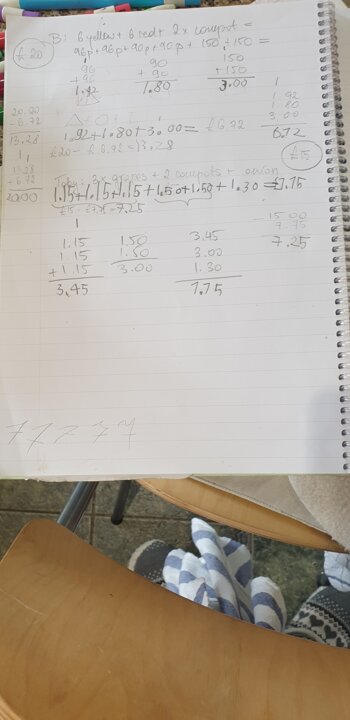 £20
B: 6 yellow + 6 red + 2 x compost =
96p + 96p + 90p + 90p + 150 + 150 =
96
+ 96
1.92
90
+ 90
1.80
150
+ 150
3.00
1.92 + 1.80 + 3.00 = £6.72
£20 - £6.72 = 13.28
1
1.92
1.80
3.00
6.72
20.20
6.72
13.28
1 1
13.28
+ 6.72
20.00
£15
3x grapes + 2 compots + onion
1.15 + 1.15 + 1.15 + 1.50 + 1.50 + 1.30 = 7.75
£15 - £7.75 = 7.25
1
1.15
1.15
+ 1.15
3.45
1.50
1.50
3.00
3.45
3.00
1.30
7.75
15.00
7.75
7.25
7 7 7 7 7